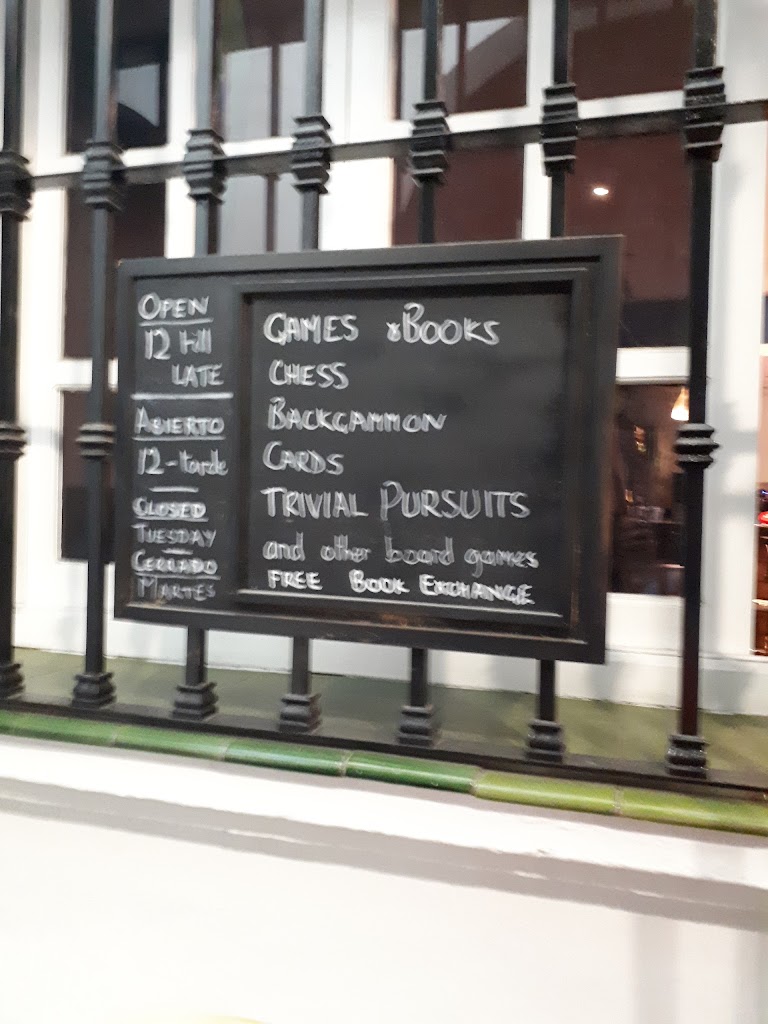 OPEN
12 till
LATE
ABIERTO
12-tarde
CLOSED
TUESDAY
CERRADO
MARTES
GAMES & BOOKS
CHESS
BACKGAMMON
CARDS
TRIVIAL PURSUITS
and other board games
FREE BOOK EXCHANGE